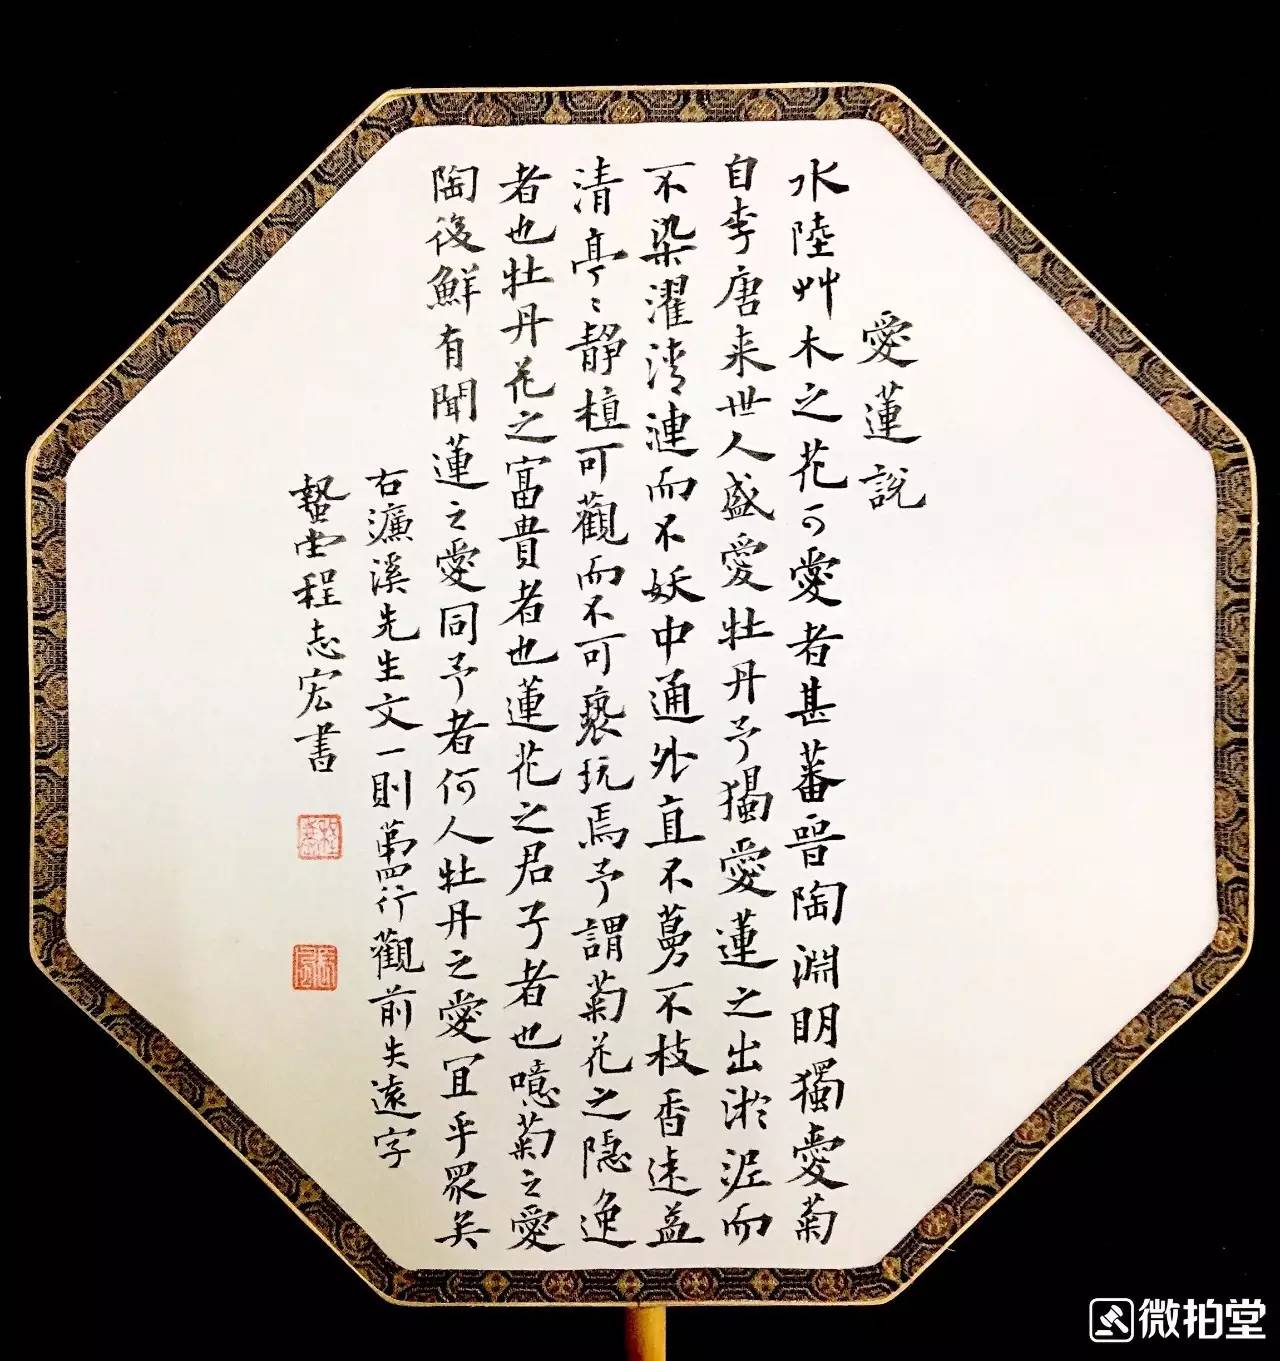 愛蓮說
水陸艸木之花可愛者甚蕃晉陶淵明獨愛菊
自李唐来世人盛愛牡丹予獨愛蓮之出淤泥而
不染濯清漣而不妖中通外直不蔓不枝香遠益
清亭〻静植可觀而不可褻玩焉予謂菊花之隱逸
者也牡丹花之富貴者也蓮花之君子者也噫菊之愛
陶後鮮有聞蓮之愛同予者何人牡丹之愛冝乎眾矣
右濂溪先生文一則第四行觀前失遠字
蟄堂程志宏書
微拍堂